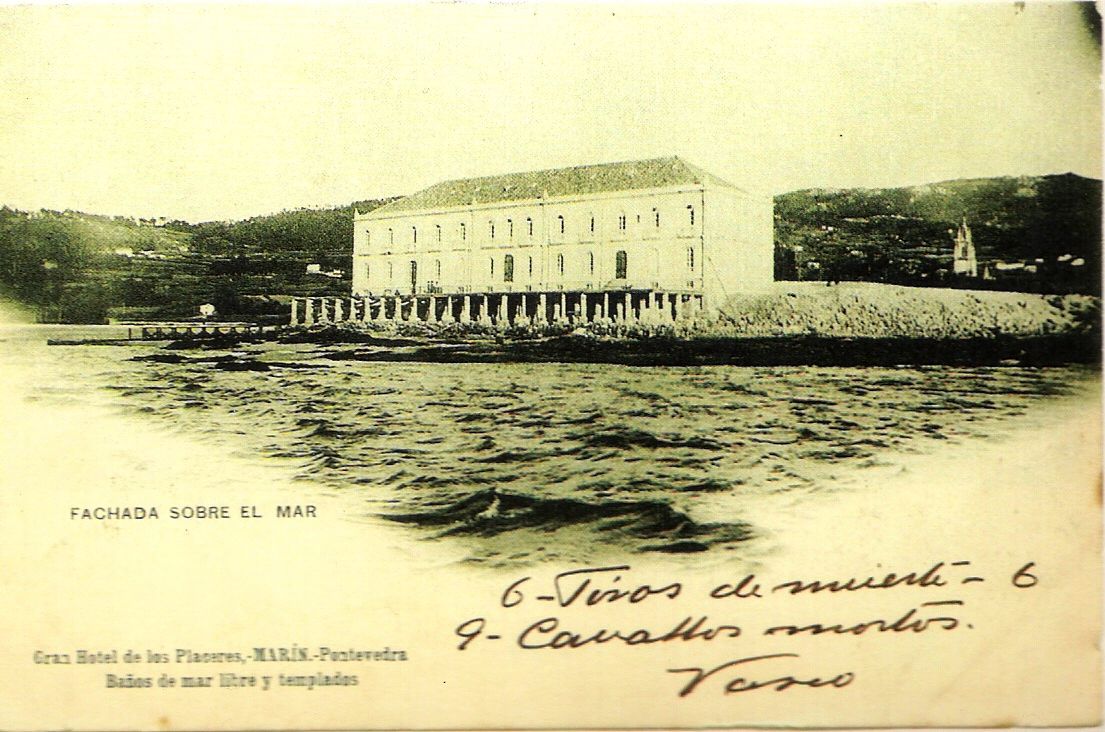 FACHADA SOBRE EL MAR
6 - Tiros de muerte - 6
9 - Cavallos mortos.
Vasco
Gran Hotel de los Placeres,-MARÍN.-Pontevedra
Baños de mar libre y templados